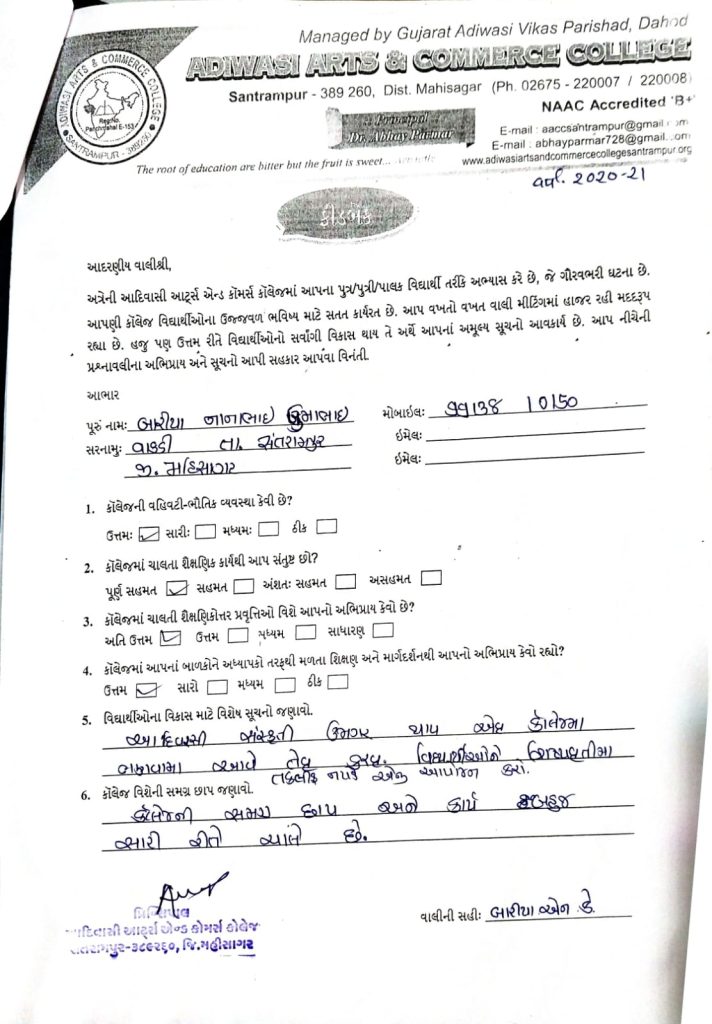 Managed by Gujarat Adiwasi Vikas Parishad, Dahod
ADIWASI ARTS & COMMERCE COLLEGE
Santrampur - 389 260, Dist. Mahisagar (Ph. 02675 - 220007 / 220008)
NAAC Accredited 'B+'
Principal
Dr. Abhay Parmar
E-mail : aaccsantrampur@gmail.com
E-mail : abhayparmar728@gmail.com
www.adiwasiartsandcommercecollegesantrampur.org
The root of education are bitter but the fruit is sweet...
ADIWASI ARTS & COMMERCE COLLEGE
Reg.No.
Panchmahal E-153
SANTRAMPUR - 389260
વર્ષ. 2020-21
ફીડબેક
આદરણીય વાલીશ્રી,
અત્રેની આદિવાસી આર્ટ્સ એન્ડ કૉમર્સ કૉલેજમાં આપના પુત્ર/પુત્રી/પાલક વિદ્યાર્થી તરીકે અભ્યાસ કરે છે, જે ગૌરવભરી ઘટના છે.
આપણી કૉલેજ વિદ્યાર્થીઓના ઉજ્જવળ ભવિષ્ય માટે સતત કાર્યરત છે. આપ વખતો વખત વાલી મીટિંગમાં હાજર રહી મદદરૂપ
રહ્યા છે. હજુ પણ ઉત્તમ રીતે વિદ્યાર્થીઓનો સર્વાંગી વિકાસ થાય તે અર્થે આપનાં અમૂલ્ય સૂચનો આવકાર્ય છે. આપ નીચેની
પ્રશ્નાવલીના અભિપ્રાય અને સૂચનો આપી સહકાર આપવા વિનંતી.
આભાર
પૂરું નામઃ બારીયા નાનાભાઇ ડુમાભાઇ
મોબાઇલઃ 99138 10150
સરનામુઃ વાંકડી તા. સંતરામપુર
ઇમેલઃ
જી. મહિસાગર
ઇમેલઃ
1. કૉલેજની વહિવટી-ભૌતિક વ્યવસ્થા કેવી છે?
ઉત્તમઃ સારીઃ મધ્યમઃ ઠીક
2. કૉલેજમાં ચાલતા શૈક્ષણિક કાર્યથી આપ સંતુષ્ટ છો?
પૂર્ણ સહમત સહમત અંશતઃ સહમત અસહમત
3. કૉલેજમાં ચાલતી શૈક્ષણિકોત્તર પ્રવૃત્તિઓ વિશે આપનો અભિપ્રાય કેવો છે?
અતિ ઉત્તમ ઉત્તમ મધ્યમ સાધારણ
4. કૉલેજમાં આપનાં બાળકોને અધ્યાપકો તરફથી મળતા શિક્ષણ અને માર્ગદર્શનથી આપનો અભિપ્રાય કેવો રહ્યો?
ઉત્તમ સારો મધ્યમ ઠીક
5. વિદ્યાર્થીઓના વિકાસ માટે વિશેષ સૂચનો જણાવો.
આદિવાસી સંસ્કૃતી ઉજાગર થાય એવુ કોલેજમા
ભણાવામા આવે તેવુ કરવુ. વિદ્યાર્થીઓને શિષ્યવૃતીમા
તકલીફ ન પડે એવુ આયોજન કરો.
6. કૉલેજ વિશેની સમગ્ર છાપ જણાવો.
કૉલેજની સમગ્ર છાપ અને કાર્ય બહુજ
સારી રીતે ચાલે છે.
પ્રિન્સિપાલ
આદિવાસી આર્ટ્સ એન્ડ કોમર્સ કોલેજ
સંતરામપુર-૩૮૯૨૬૦, જિ.મહીસાગર
વાલીની સહીઃ બારીયા એન ડે.